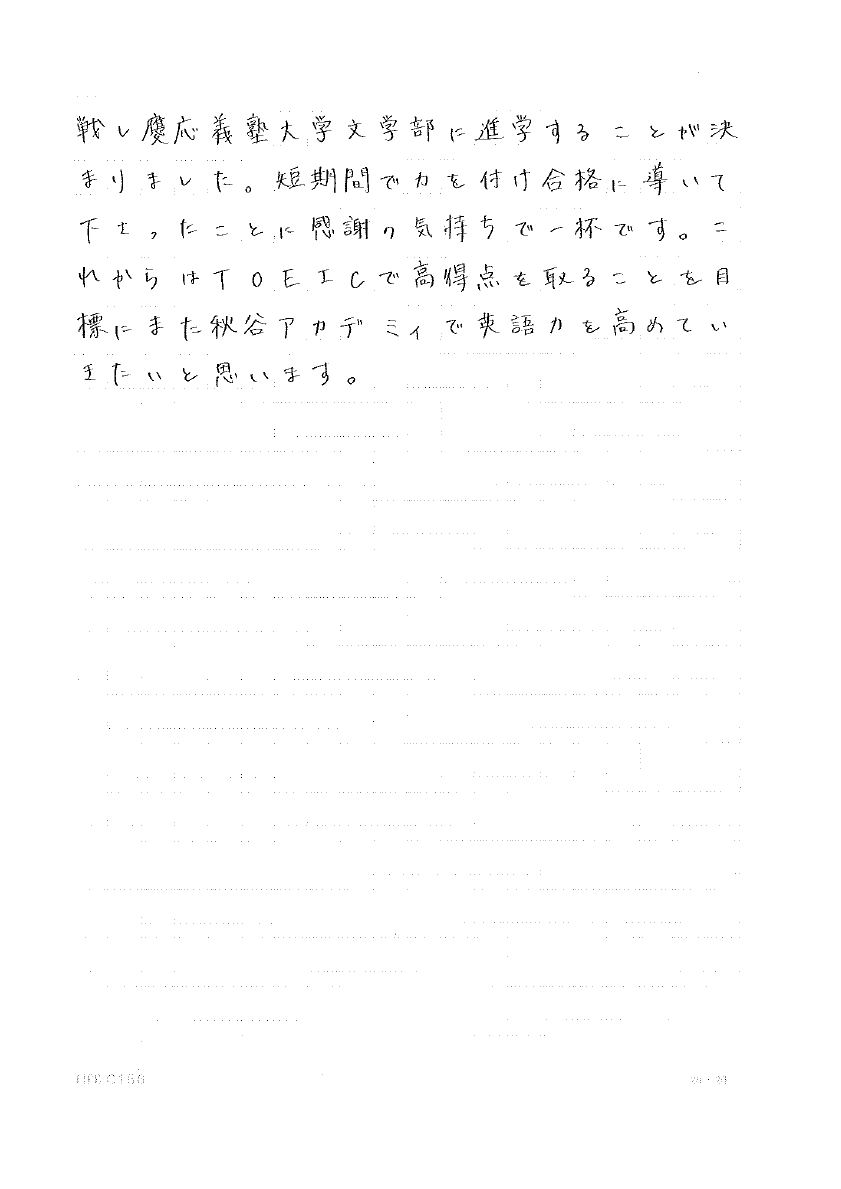 戦し慶応義塾大学文学部に進学することが決
まりました。短期間で力を付け合格に導いて
下さったことに感謝の気持ちで一杯です。こ
れからはTOEICで高得点を取ることを目
標にまた秋谷アカデミィで英語力を高めてい
きたいと思います。